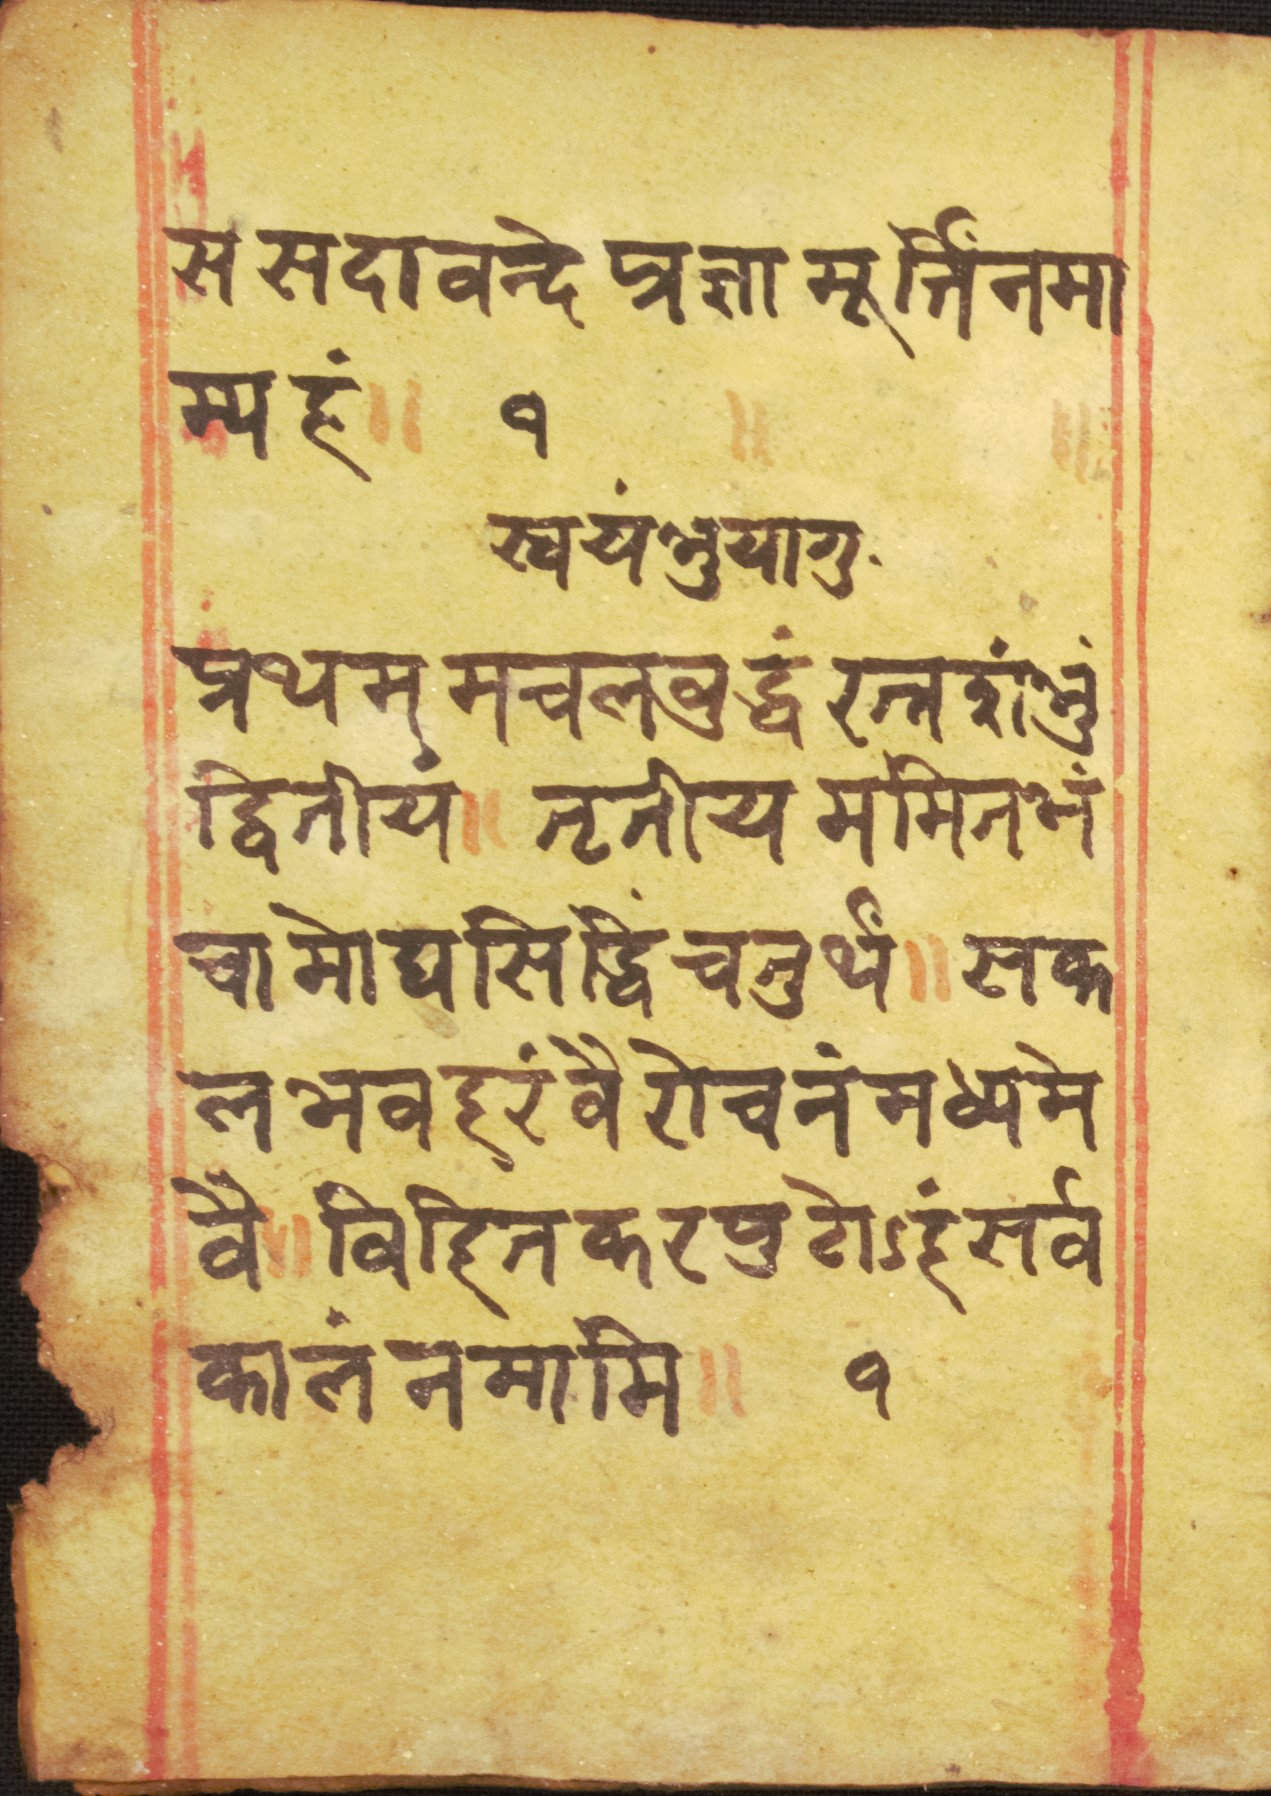 स सदा वन्दे प्रज्ञा मूर्त्तिं नमा
म्य हं॥ १ ॥ ॥
स्वयंभुयागु
प्रथम् मचलबुद्धं रत्नशंभुं
द्वितीयं॥ तृतीय ममितभं
चामोघसिद्धिं चतुर्थं॥ सक
ल भव हरं वैरोचनं मध्यमे
वै॥ विहित करपुटोऽहं सर्व
कालं नमामि॥ १